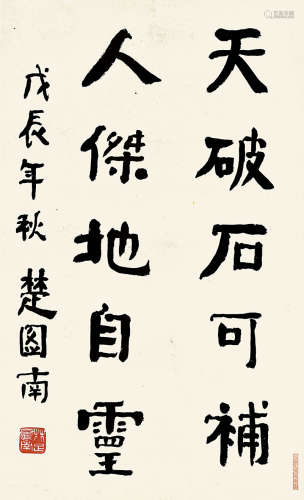 天破石可補
人傑地自靈
戊辰年秋 楚图南